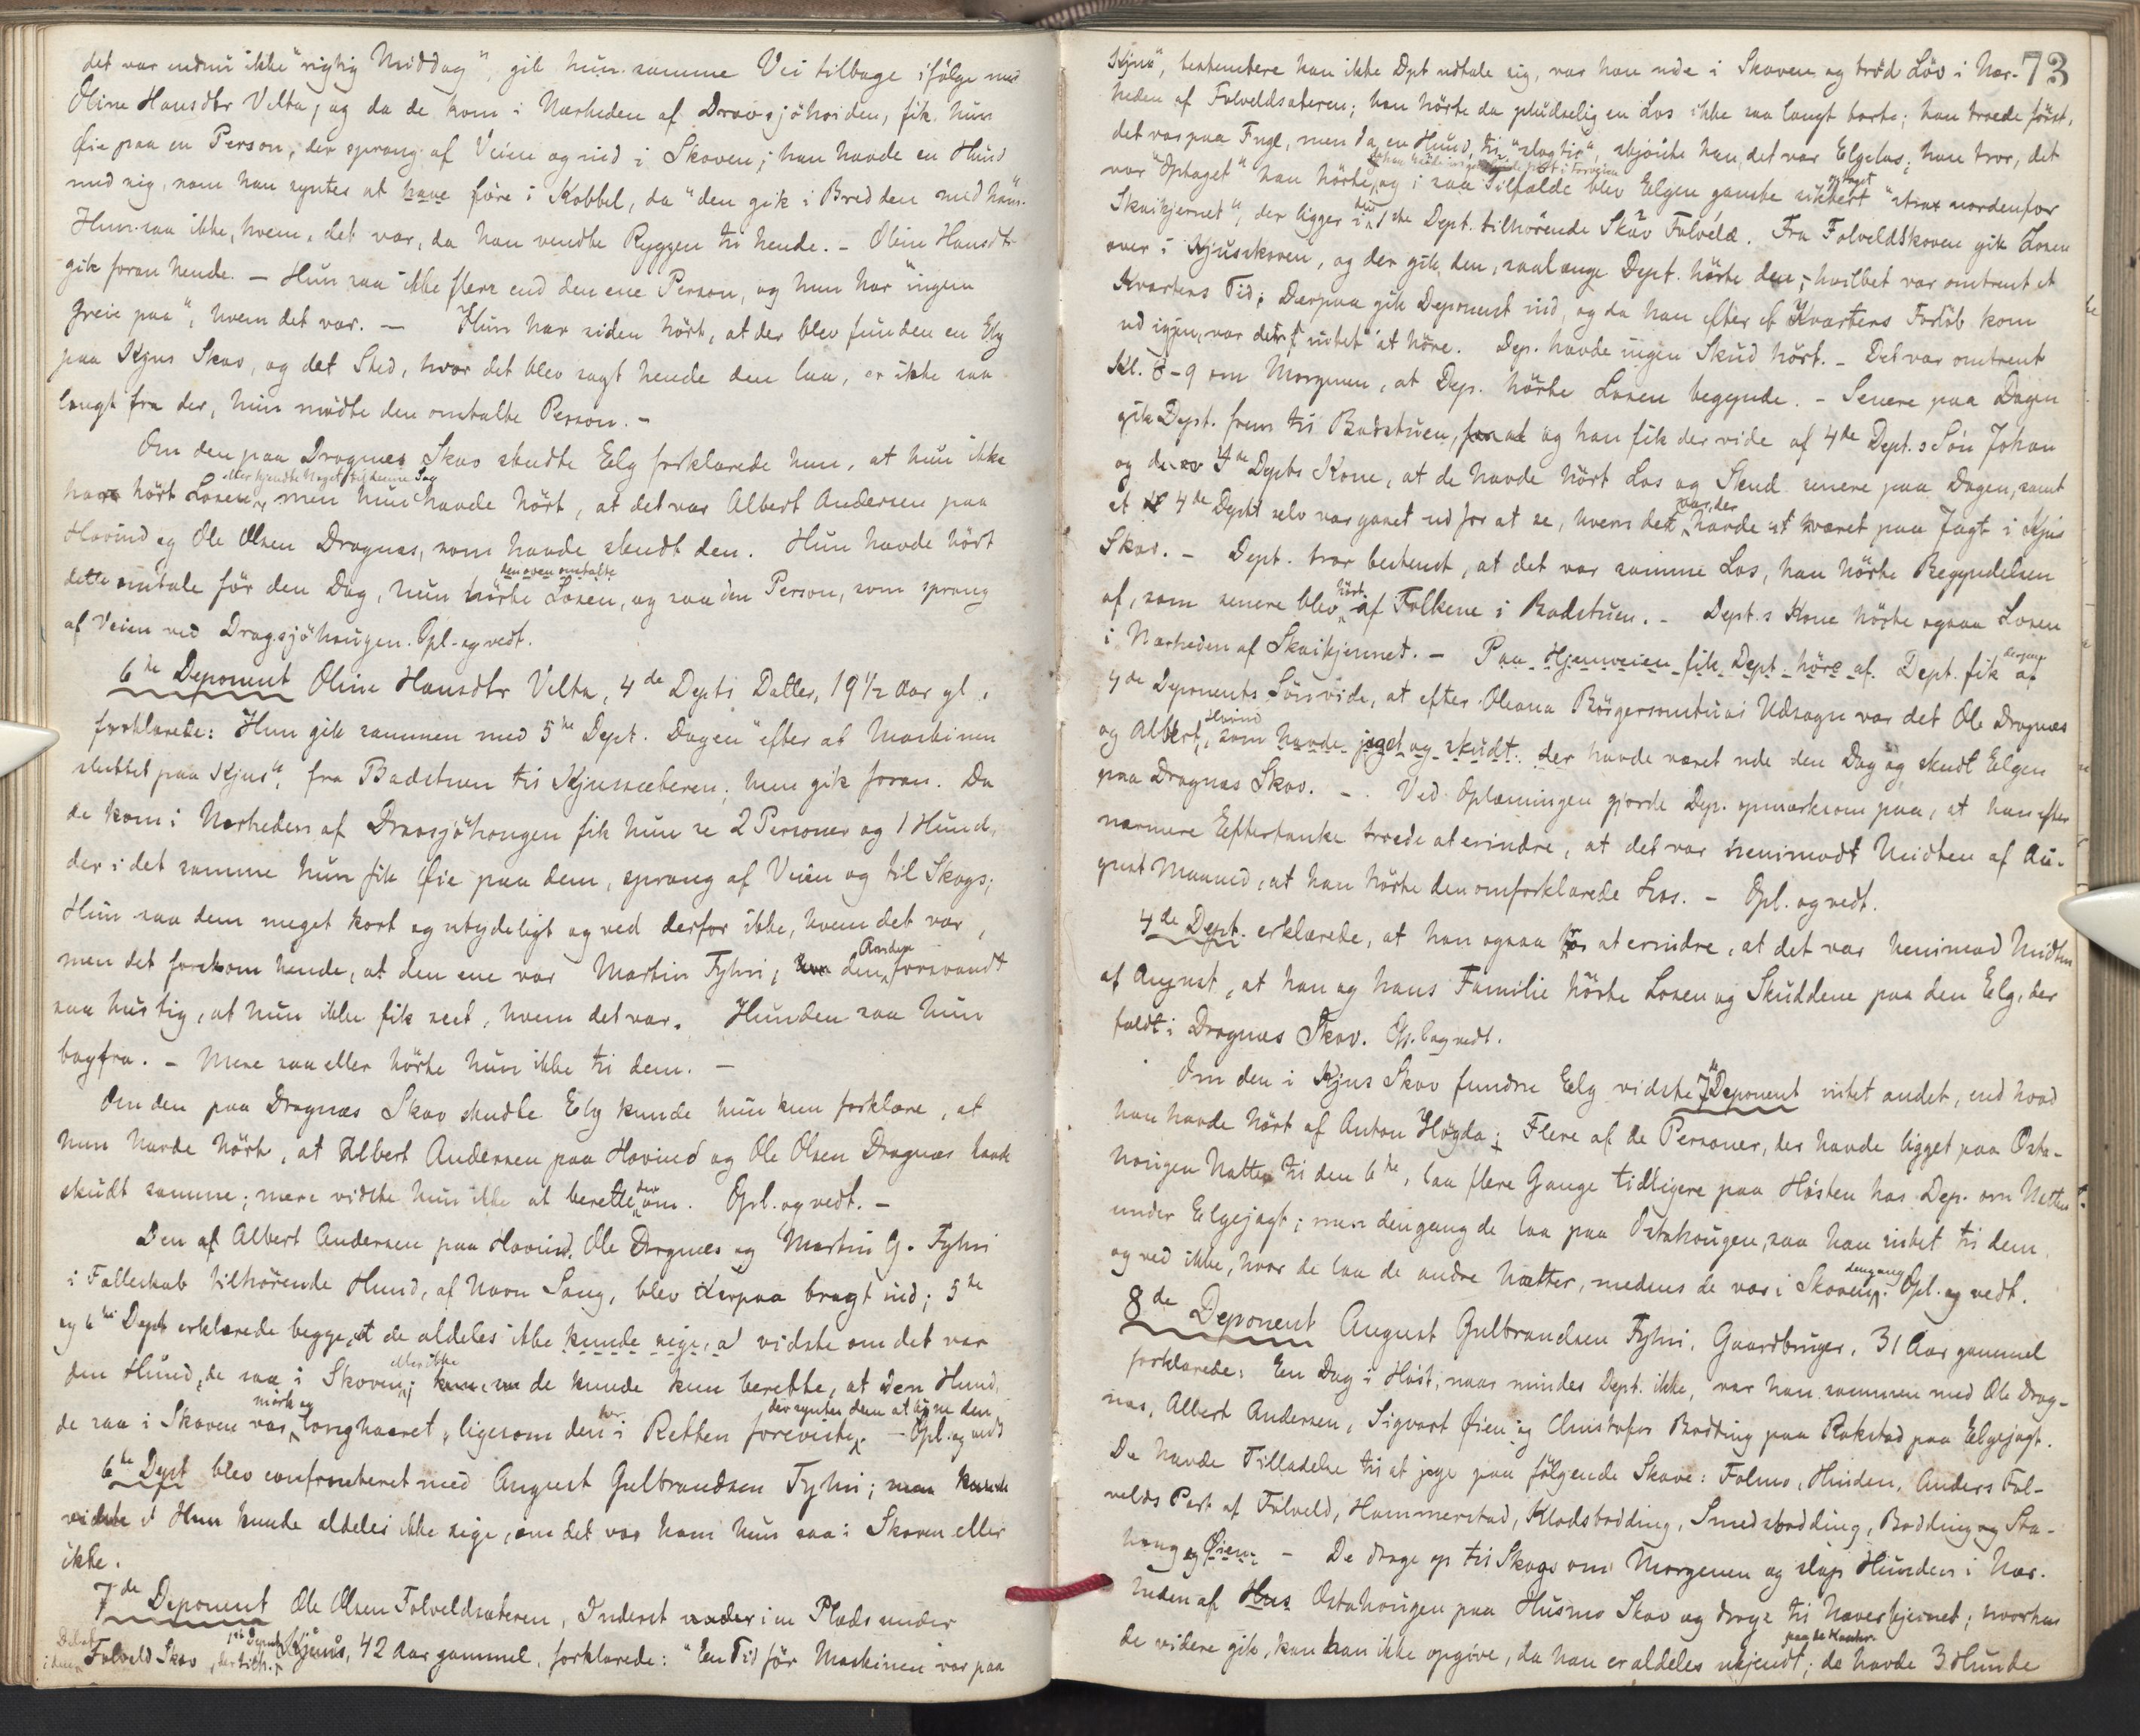 det var endnu ikke "rigtig Middag", gik hun samme Vei tilbage ifölge med
Oline Hansdtr Velta, og da de kom i Nærheden af Dravsjöhaiden, fik hun
Øie paa en Person, der sprang af Veien og ind i Skoven; han havde en Hund
med sig, som han syntes at have före i Kobbel, da "den gik i Bredden med ham".
Hun saa ikke, hvem det var, da han vendte Ryggen til hende. – Oline Hansdtr
gik foran hende. – Hun saa ikke flere end den ene Person, og hun har "ingen
Greie paa", hvem det var. – Hun har siden hört, at der blev funden en Elg
paa Kjus Skov, og det Sted, hvor det blev sagt hende den laa, er ikke saa
langt fra der, hun mödte den omtalte Person. –
Om den paa Dragnæs Skov skudte Elg forklarede hun, at hun ikke
eller kjendte Noget til denne Sag
have hört Losen, men hun havde hört, at det var Albert Andersen paa
Hovind og Ole Olsen Dragnæs, som havde skudt den. Hun havde hört
den oven omtalte
dette omtale för den Dag, hun hörte Losen, og saa den Person, som sprang
af Veien ved Dragsjöhaugen. Opl. og vedt.
6te Deponent Oline Hansdtr Velta, 4de Depts Datter, 19 1/2 Aar gl.
forklarede: Hun gik sammen med 5te Dept. Dagen "efter at Maskinen
sluttet paa Kjus", fra Badstuen til Kjussæteren; hun gik foran. Da
de kom i Nærheden af Dravsjöhaugen fik hun se 2 Personer og 1 Hund,
der i det samme hun fik Øie paa dem, sprang af Veien og til Skogs;
Hun saa dem meget kort og utydeligt og ved derfor ikke, hvem det var,
men det forekom hende, at den ene var Martin Fyhri; den Anden forsvandt
saa hurtig, at hun ikke fik seet, hvem det var. Hunden saa hun
bagfra. – Mere saa eller hörte hun ikke til dem. –
Om den paa Dragnæs Skov skudte Elg kunde hun kun forklare, at
hun havde hört, at Albert Andersen paa Hovind og Ole Olsen Dragnæs havde
skudt samme; mere vidste hun ikke at berette derom. Opl. og vedt. –
Den af Albert Andersen paa Hovind, Ole Dragnæs og Martin G. Fyhri
i Fælleskab tilhörende Hund, af Navn Sang, blev derpaa bragt ind; 5te
og 6te Dept erklærede begge, at de aldeles ikke kunde sige, a vidste om det var
den Hund, de saa i Skoven, eller ikke; de kunde kun berette, at den Hund,
de saa i Skoven var mörk og langhaaret, ligesom den her i Retten foreviste, der syntes dem at ligne den. – Opl. og vedt
6te Dept blev confronteret med August Gulbrandsen Fyhri; men kunde
vidste Hun kunde aldeles ikke sige, om det var ham hun saa i Skoven eller
ikke.
7de Deponent Ole Olsen Folveldsæteren, Inderst under i en Plads under
Folveld Skov, Kjuus, 42 Aar gammel, forklarede: "En Tid för Maskinen var paa
73
Kjus", bestemtere kan ikke Dpt udtale sig, var han ude i Skoven og bröd Löv i Nær-
heden af Folveldsæteren; han hörte da pludselig en Los ikke saa langt borte; han troede först,
det var paa Fugl, men da en Hund til "slog til", skjönte han, det var Elgelos; han tror, det
var "Optaget" han hörte, og i saa Tilfælde blev Elgen ganske sikkert optaget "strax nordenfor
Skaikjernet", der ligger i den 1ste Dept. tilhörende Skov Folveld. Fra Folveldskoven gik Losen
over i Kjusskoven, og der gik den, saalænge Dept. hörte den, hvilket var omtrent et
Kvarters Tid; Derpaa gik Deponent ind, og da han efter et Kvarters Forlöb kom
ud igjen, var der intet at höre. Dep. havde ingen Skud hört. – Det var omtrent
Kl. 8–9 om Morgenen, at Dep. hörte Losen begynde. – Senere paa Dagen
gik Dept. frem til Badstuen, for at og han fik der vide af 4de Dept.s Sön Johan
og de 4de Depts Kone, at de havde hört Los og Skud senere paa Dagen, samt
at 4de Dept selv var gaaet ud for at se, hvem det var, der havde været paa Jagt i Kjus
Skov. – Dept. tror bestemt, at det var samme Los, han hörte Begyndelsen
af, som senere blev hört af Folkene i Badstuen. – Dept.s Kone hörte ogsaa Losen
i Nærheden af Skaikjernet. – Paa Hjemveien fik Dept. höre af Dept. fik af
4de Deponents Sön vide, at efter Oleana Börgersmstuas Udsagn var det Ole Dragnæs
og Albert Hovind, som havde jaget og skudt der havde været ude den Dag og skudt Elgen
paa Dragnæs Skov. – Ved Oplæsningen gjorde Dep. opmærksom paa, at han efter
nærmere Eftertanke troede at erindre, at det var henimodt Midten af Au-
gust Maaned, at han hörte den omforklarede Los. – Opl. og vedt.
4de Dept. erklærede, at han ogsaa tror at erindre, at det var henimod Midten
af August, at han og hans Familie hörte Losen og Skuddene paa den Elg, der
faldt i Dragnæs Skov. Opl. og vedt.
Om den i Kjus Skov fundne Elg vidste 7de Deponent intet andet, end hvad
han havde hört af Anton Högda; Flere af de Personer, der havde ligget paa Osta-
haugen Natten til den 6te, laa flere Gange tidligere paa Hösten hos Dep. om Natten
under Elgejagt; men dengang de laa paa Ostahaugen, saa han intet til dem
og ved ikke, hvor de laa de andre Nætter, medens de var i Skoven dengang. Opl. og vedt.
8de Deponent August Gulbrandsen Fyhri, Gaardbruger, 31 Aar gammel
forklarede: En Dag i Höst, naar mindes Dept. ikke, var han sammen med Ole Drag-
næs, Albert Andersen, Sigvart Øien og Christofer Bødting paa Rakstad paa Elgejagt.
De havde Tilladelse til at jage paa fölgende Skove: Folmo, Hinden, Anders Fol-
velds Part af Folveld, Hammerstad, Klodsbødding, Smedsbødding, Bødding og Sta-
haug og Øien. – De droge op til Skogs om Morgenen og slap Hunden i Nær-
heden af Hus Ostahaugen paa Husmo Skov og droge til Næverkjernet; hvorhen
de videre gik, kan han ikke opgive, da han er aldeles ukjendt paa de Kanter; de havde 3 Hunde